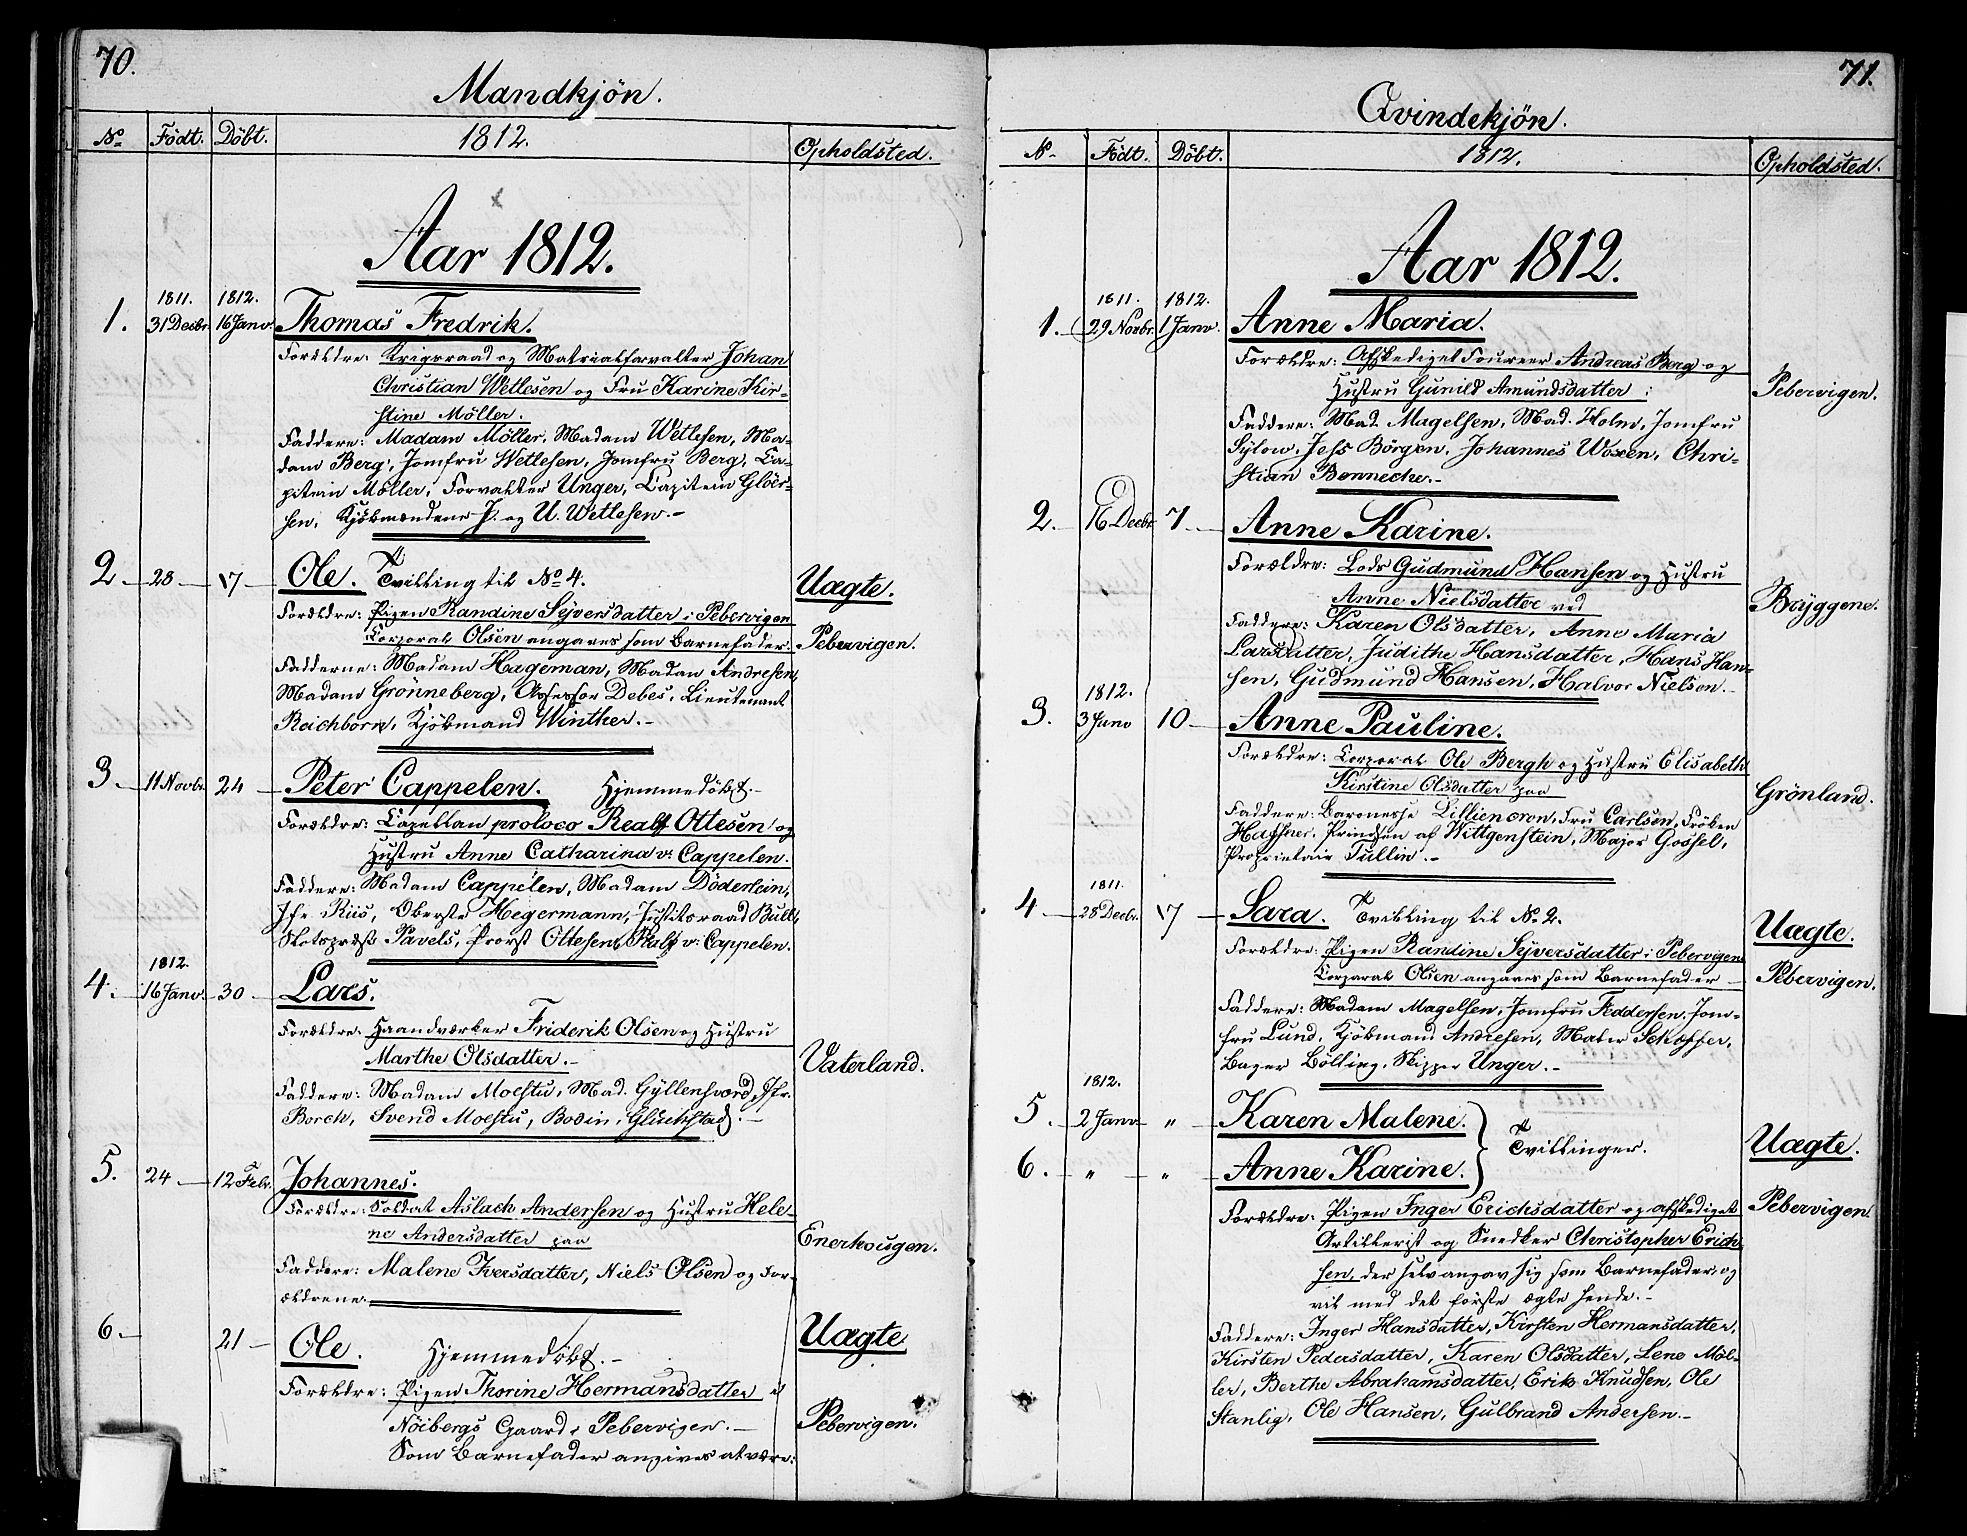 70.
Mandkjön.
No Födt. Döbt. 1812. Opholdsted.
Aar 1812.
1811. 1812.
1. 31 Decbr. 16 Janv. Thomas Fredrik.
Forældre: Krigsraad og Matrialforvalter Johan
Christian Wetlesen og Fru Karine Kir-
stine Möller.
Faddere: Madam Möller, Madam Wetlesen, Ma-
dam Berg, Jomfru Wetlesen, Jomfru Berg, Ca-
pitein Möller, Forvalter Unger, Capitein Glöer-
sen, Kjöbmændene P. og U. Wetlesen.-
2 - 28 - 17 - Ole. Tvilling til No 4. Uægte.
Forældre: Pigen Randine Syversdatter i Pebervigen
Corporal Olsen angaves som Barnefader. Pebervigen.
Fadderne: Madam Hageman, Madam Andresen,
Madam Grönneberg, Assessor Debes, Lieutenant
Reichborn, Kjöbmand Winther.-
3 - 11 Novbr. 24 - Peter Cappelen. Hjemmedöbt.-
Forældre: Capellan proloco Realf Ottesen og
Hustru Anne Catharina v. Cappelen.
Faddere: Madam Cappelen, Madam Döderlein,
Jfr Riis, Oberste Hegermann, Justitsraad Bull,
Slotspræst Pavels, Provst Ottesen, Ralf v. Cappelen.
1812.
4. 16 Janv. 30 - Lars.
Forældre: Haandværker Friderik Olsen og Hustru
Marthe Olsdatter.- Vaterland.
Faddere: Madam Moestu, Mad. Gyllensværd, Jfr.
Borch, Svend Moestu, Bodin, Gluckstad.-
5. 24 - 12 Febr. Johannes.
Forældre: Soldat Aslach Andersen og Hustru Hele-
ne Andersdatter paa Enerhougen.
Faddere: Malene Iversdatter, Niels Olsen og For-
ældrene.
6 - 21 - Ole. Hjemmedöbt.- Uægte
Forældre: Pigen Thorine Hermansdatter i
Nöibergs Gaard i Pebervigen.- Pebervigen.
Som Barnefader angives at være:
71.
Qvindekjön.
No Födt. Döbt. 1812. Opholdsted.
Aar 1812.
1811. 1812.
1. 29 Novbr. 1 Janv. Anne Maria.
Forældre: Afskediget Foureer Andreas Berg og
Hustru Gunild Amundsdatter i Pebervigen.
Faddere: Mad. Magelsen, Mad. Holm, Jomfru
Sylow, Jess Börgen, Johannes Woxen, Chri-
stian Bennecke.-
2. - 16 Decbr. 7 - Anne Karine.
Forældre: Lods Gudmund Hansen og Hustru
Anne Nielsdatter ved Bryggene.
Faddere: Karen Olsdatter, Anne Maria
Larsdatter, Judithe Hansdatter, Hans Han-
sen, Gudmund Hansen, Halvor Nielsen.-
1812.
3. 3 Janv 10 - Anne Pauline.
Forældre: Corporal Ole Bergh og Hustru Elisabeth
Kirstine Olsdatter paa Grönland.
Faddere: Baronesse Lilliencron, Fru Carlsen, Fröken
Haffner, Prindsen af Wittgenstein, Major Gossel,
Proprietair Tullin.-
1811.
4 - 28 Decbr. 17 - Sara. Tvilling til No 2. Uægte.
Forældre: Pigen Randine Syversdatter i Pebervigen
Corporal Olsen angaves som Barnefader - Pebervigen.
Faddere: Madam Magelsen, Jomfru Feddersen, Jom-
fru Lund, Kjöbmand Andresen, Maler Schøffer,
Bager Bölling, Skipper Unger.-
1812.
5. - 2 Janv - " - Karen Malene.
Tvillinger. Uægte.
6. - " - " - Anne Karine.
Forældre: Pigen Inger Erichsdatter og afskediget Pebervigen.
Artillerist og Snedker Christopher Erich-
sen, der selv angav sig som Barnefader og
vil med det förste ægte hende.-
Faddere: Inger Hansdatter, Kirsten Hermansdatter,
Kirsten Pedersdatter, Karen Olsdatter, Lene Möl-
ler, Berthe Abrahamsdatter, Erik Knudsen, Ole
Stanlig, Ole Hansen, Gulbrand Andersen.-